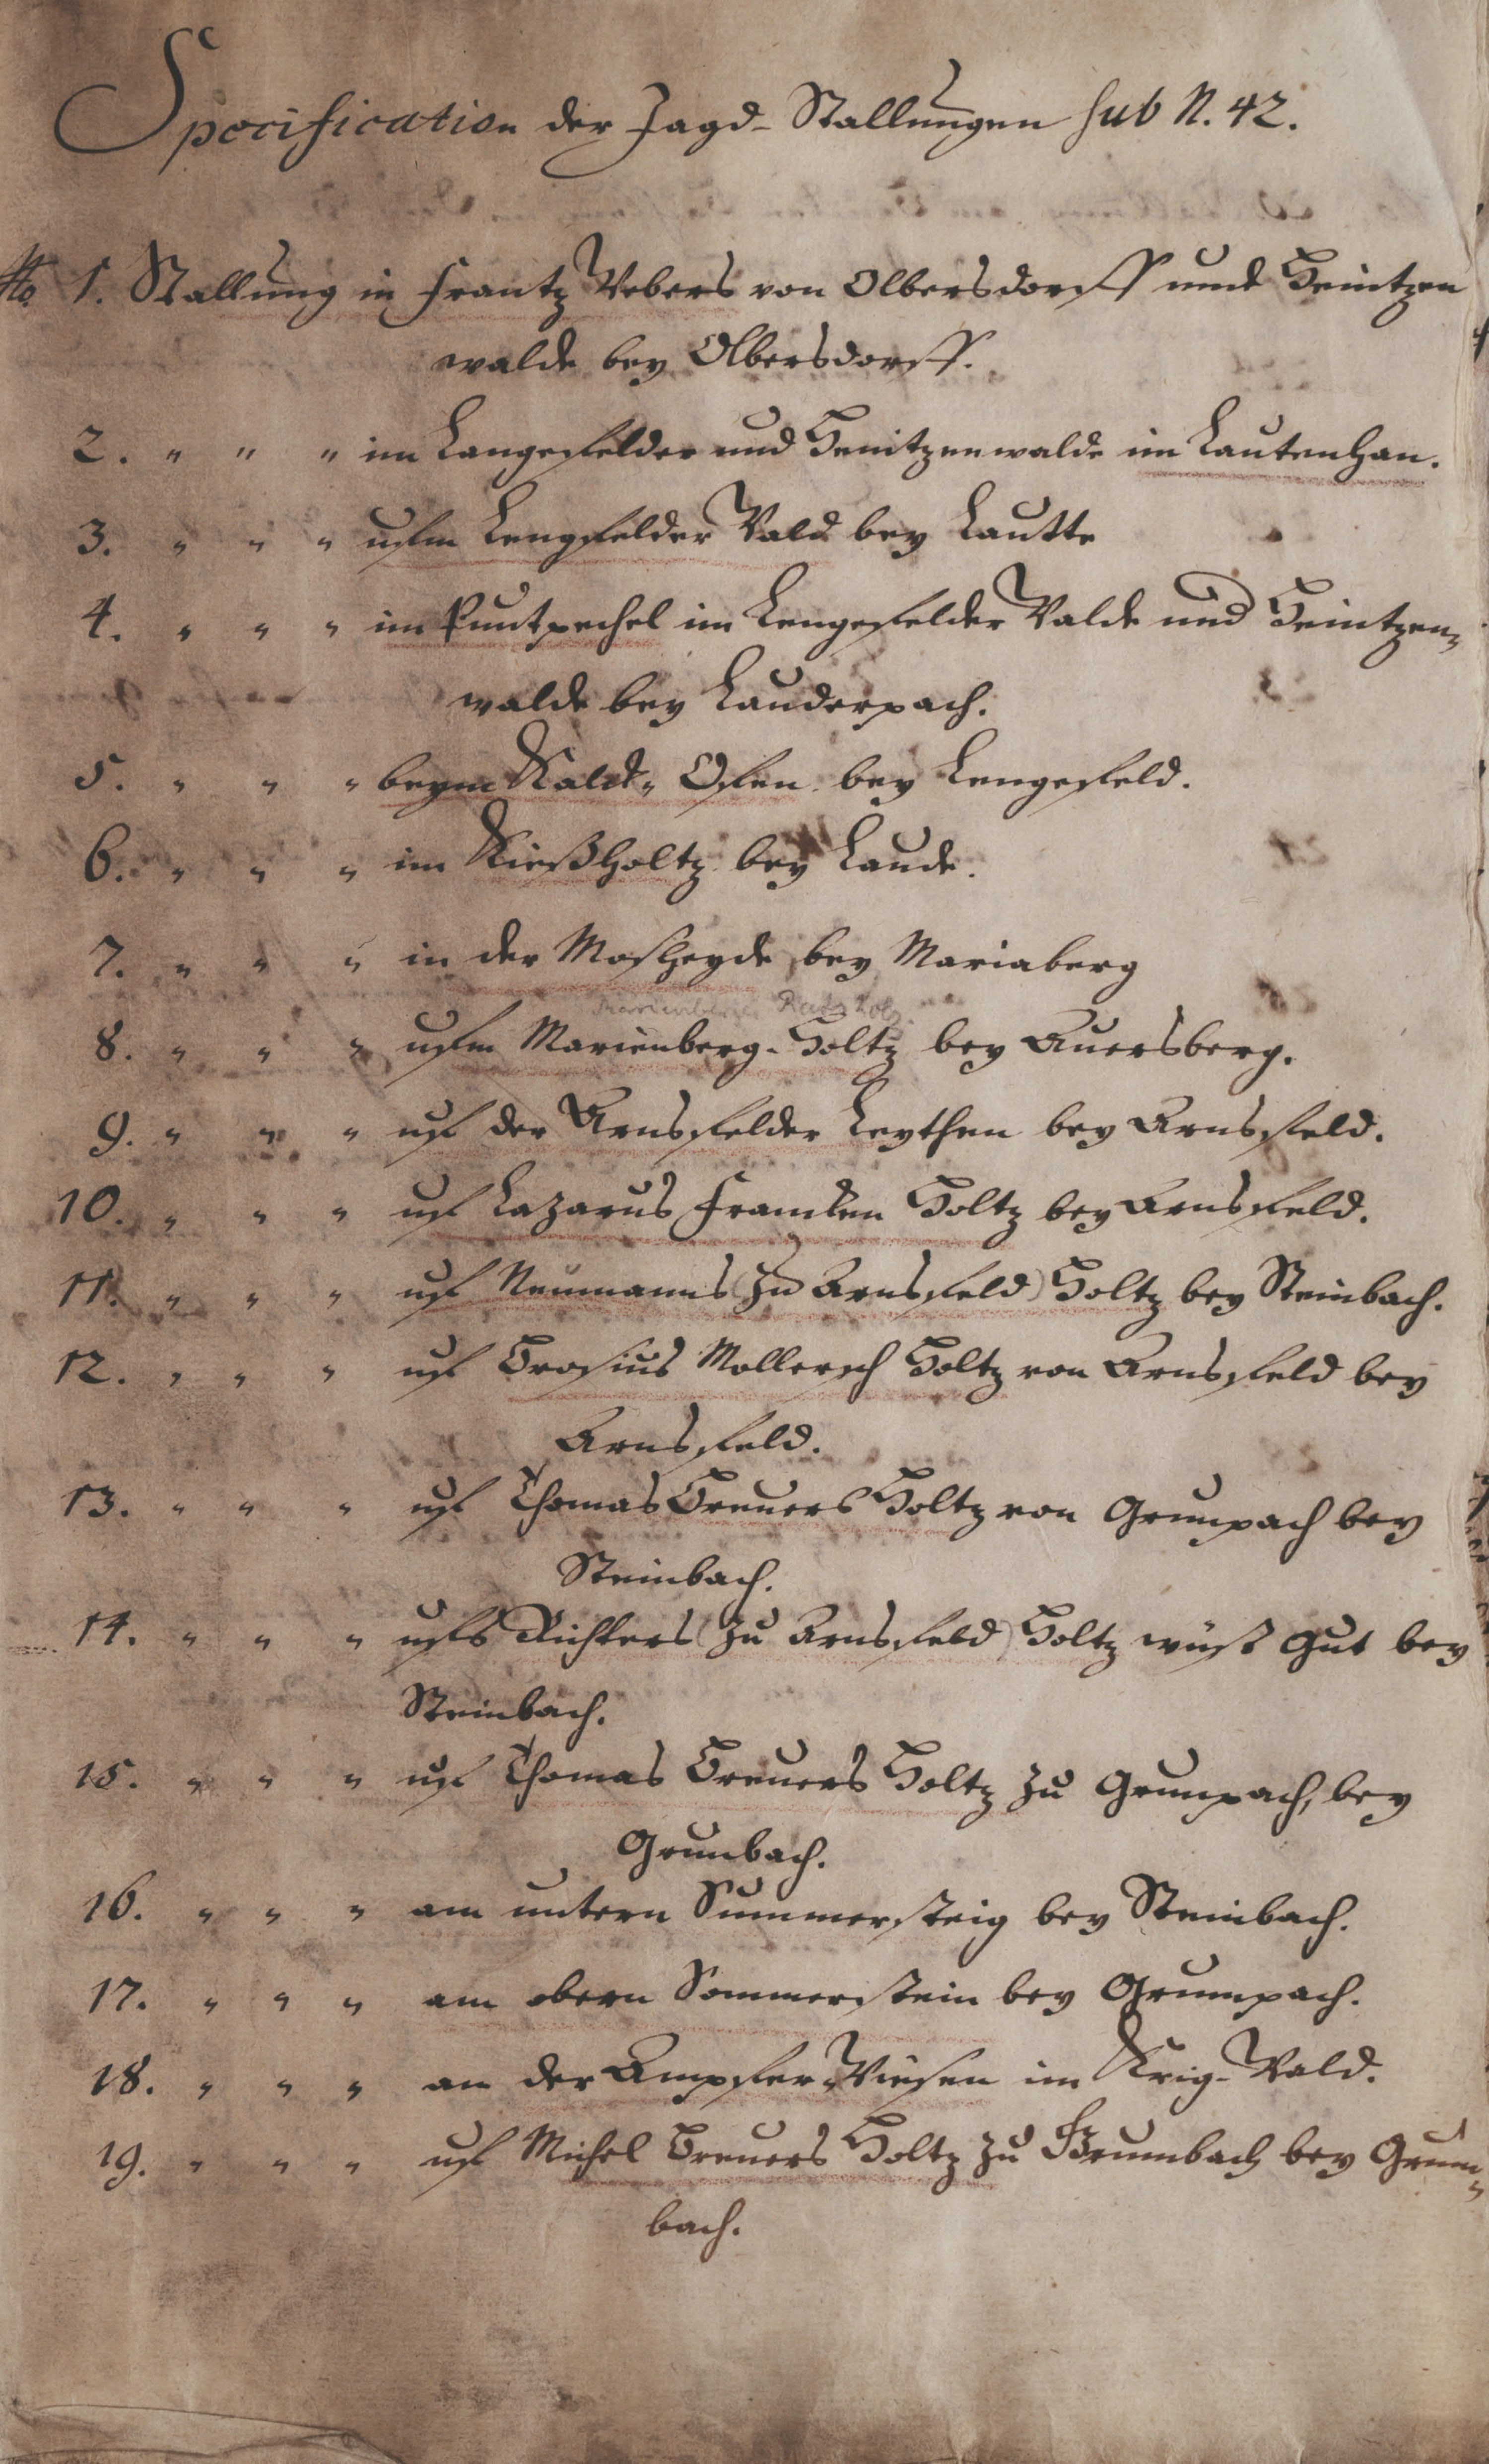 Specification der Jagd-Stallungen sub N. 42.
No 1. Stallung in Frantz Webers von Olbersdorff und Heintzen
walde bey Olbersdorff.
2. " " " im Langefelder und Heintzenwalde im Lautenhan.
3. " " " ufm Lengfelder Wald bey Lautte
4. " " " im Puntzechel im Lengefelder Walde und Heintzen=
walde bey Lauderpach.
5. " " " beym Kalck= Ofen bey Lengefeld.
6. " " " im Kießholtz bey Laude.
7. " " " in der Mosheyde bey Mariaberg
Marienberger Rats Holz
8. " " " ufm Marienberg-Holtz bey Auersberg.
9. " " " uf der Arnsfelder Leythen bey Arnsfeld.
10. " " " uf Lazarus Francken Holtz bey Arnsfeld.
11. " " " uf Neumanns (zu Arnsfeld) Holtz bey Steinbach.
12. " " " uf Brosius Mollersch Holtz von Arnsfeld bey
Arnsfeld.
13. " " " uf Thomas Breuers Holtz von Grunpach bey
Steinbach.
14. " " " ufs Richters (zu Arnsfeld) Holtz wüst Gut bey
Steinbach.
15. " " " uf Thomas Breuers Holtz zu Grunpach, bey
Grunbach.
16. " " " am untern Summersteig bey Steinbach.
17. " " " am obern Sommerstein bey Grumpach.
18. " " " an der Ampfer-Wiesen im Krig-Wald.
19. " " " uf Michel Breuers Holtz zu Grumbach bey Grum=
bach.